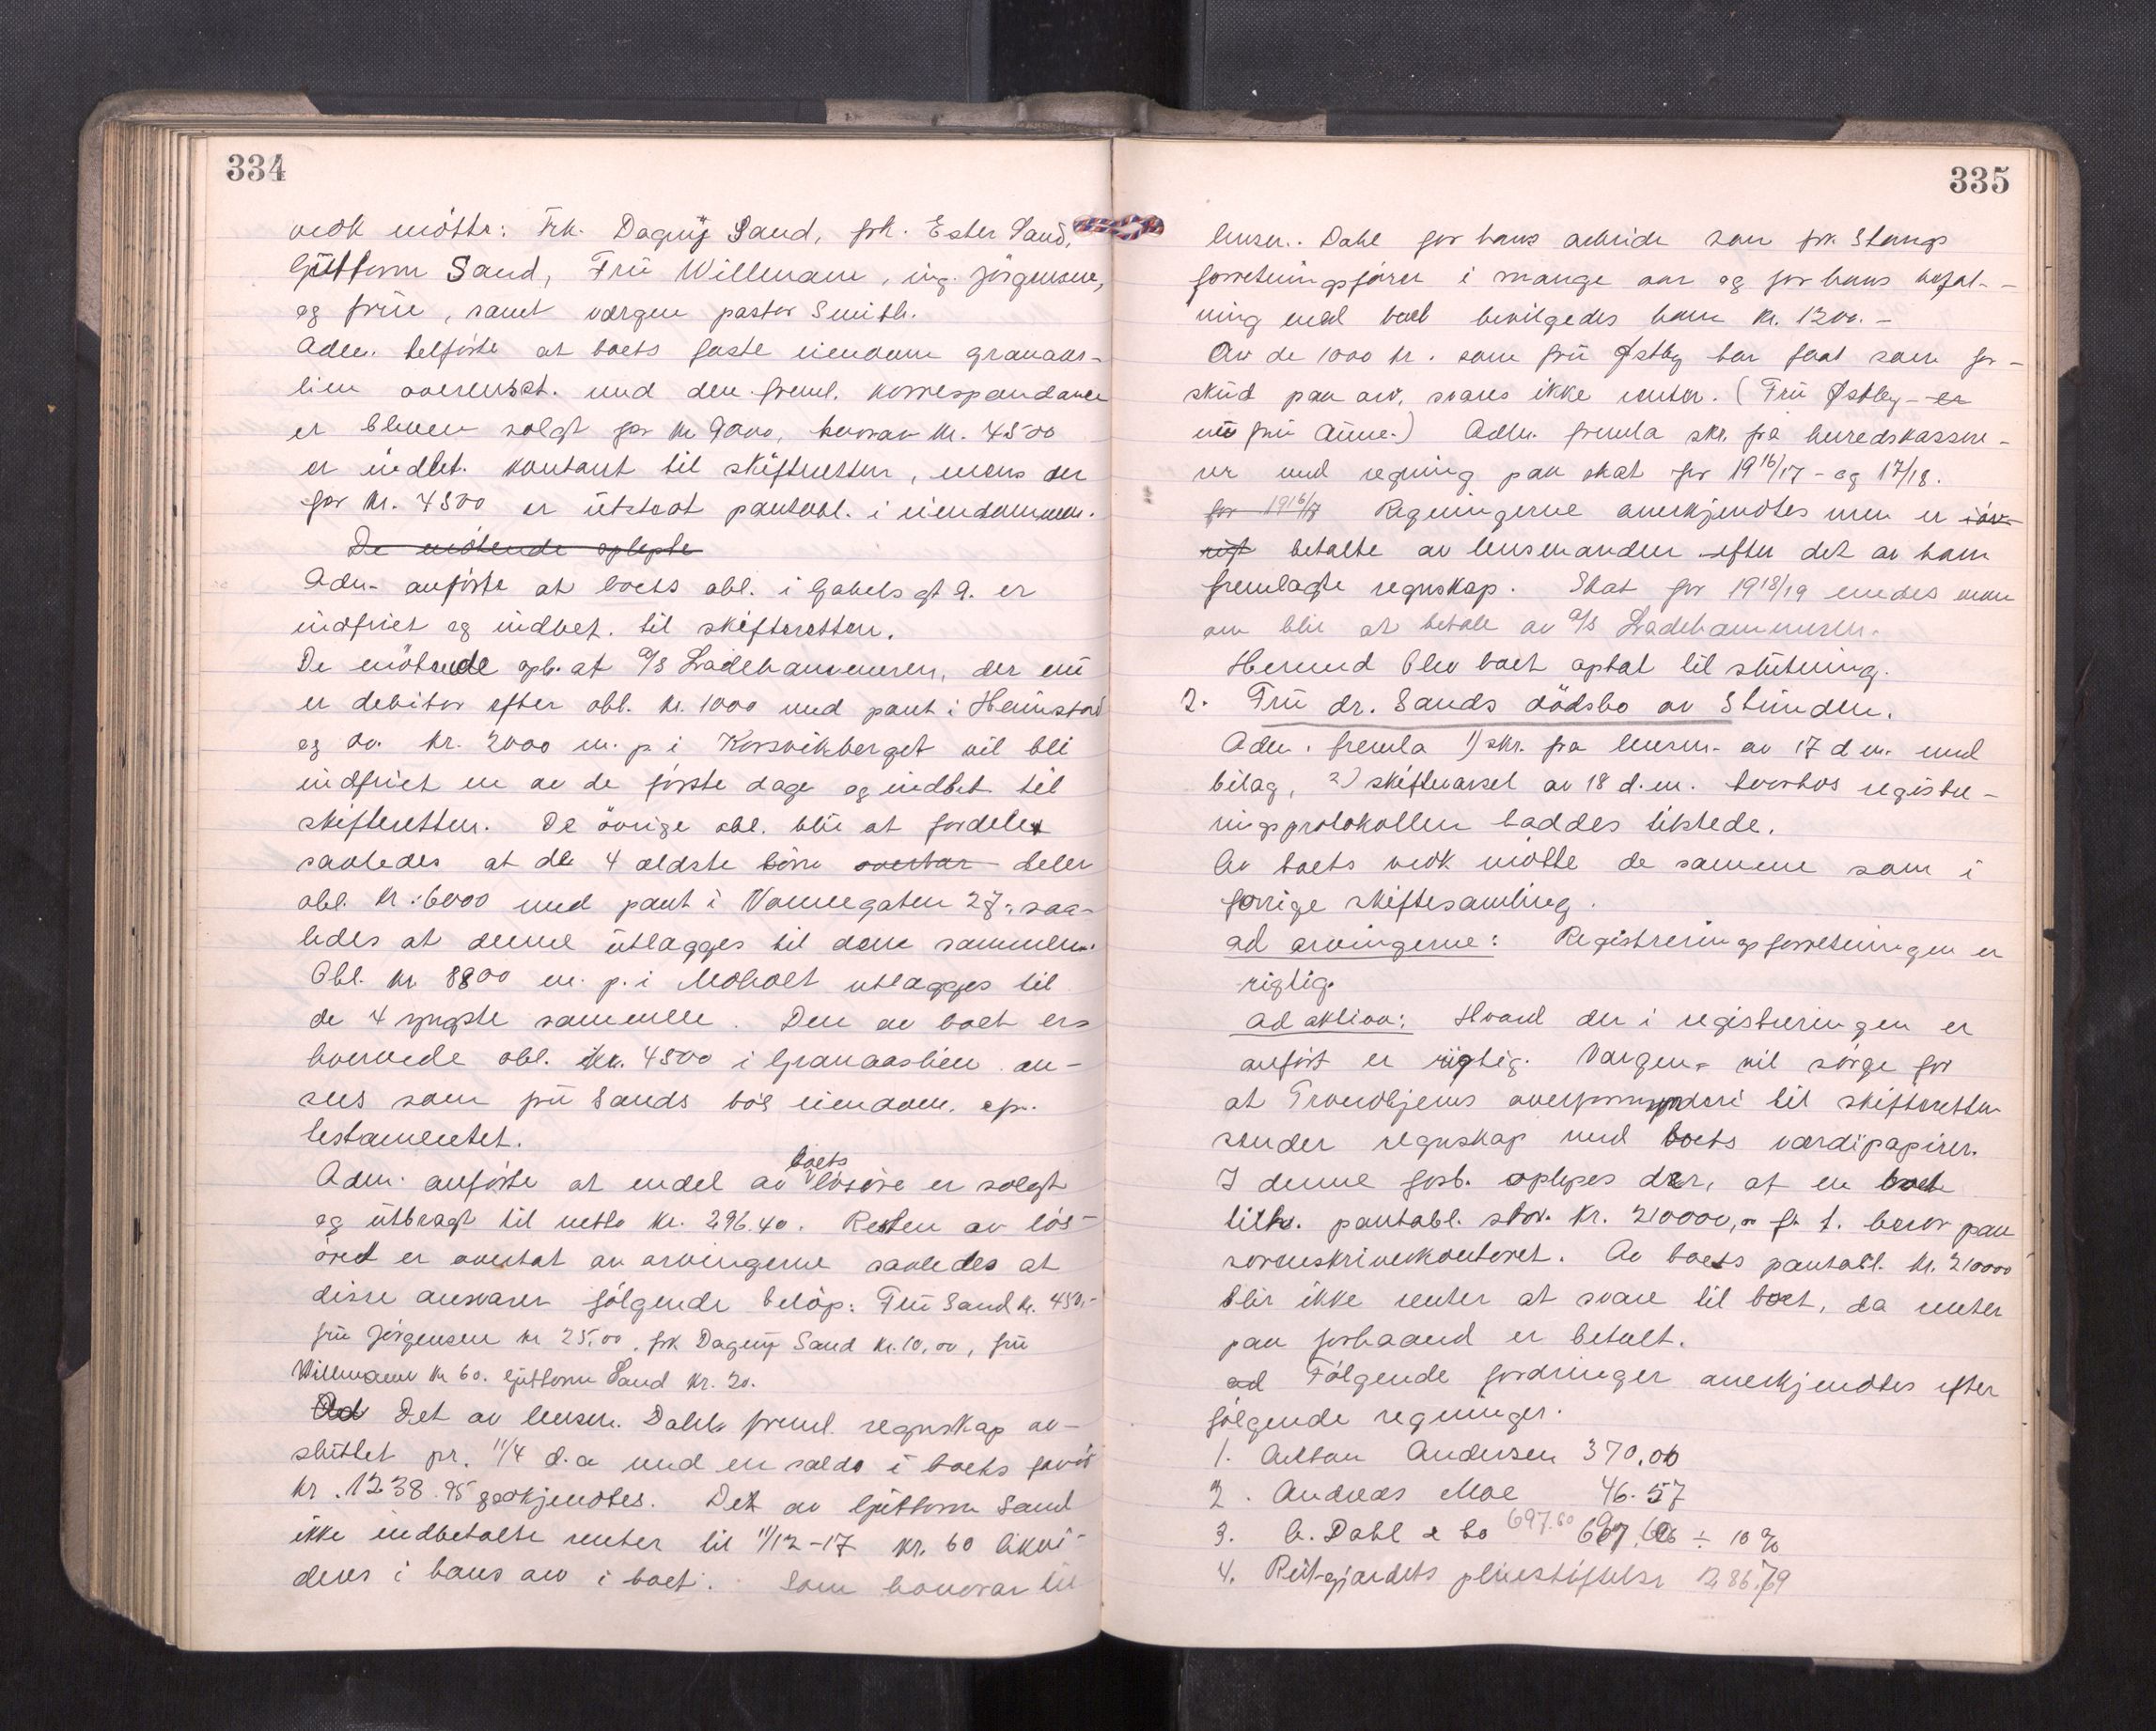 334
vedk møtte: Frk. Dagny Sand, frk. Ester Sand,
Guttorm Sand, Fru Willmann, ing. Jørgensen,
og frue, samt værgen pastor Smith.
Adm. tilførte at boets faste eiendom Granaas-
lien overensst. med den freml. korrespondance
er bleven solgt for kr. 9000, hvorav kr. 4500
er indbet. kontant til skifteretten, mens der
for kr. 4500 er utstedt pantobl. i eiendommen.
De møtende oplyste
Adm. anførte at boets obl. i Gabels gt 9. er
indfriet og indbet. til skifteretten.
De møtende opl. at A/S Ladehammeren, der nu
er debitor efter obl. kr. 1000 med pant i Heimstad
og do. kr. 2000 m. p. i Korsvikberget vil bli
indfriet en av de første dage og indbet. til
skifteretten. De øvrige obl. blir at fordele
saaledes at de 4 ældste børn overtar deler
obl. kr. 6000 med pant i Vonnegaten 27, saa-
ledes at denne utlægges til dem sammen.
Obl. kr 8800 m. p. i Moholt utlægges til
de 4 yngste sammen. Den av boet er-
hvervede obl. kr. 4500 i Granaaslien an-
sees som fru Sands bos eiendom, cfr.
testamentet.
Adm. anførte at endel av boets løsøre er solgt
og utbragt til netto kr. 296.40. Resten av løs-
øret er overtat av arvingerne saaledes at
disse ansvarer følgende beløp: Fru Sand kr. 450,-
fru Jørgensen kr 25,00, frk Dagny Sand kr. 10,00, fru
Willmann kr 60. Guttorm Sand kr. 20.
Ad Det av lensm. Dahl freml. regnskap av-
sluttet pr. 11/4 d.a med en saldo i boets favør
kr. 1238.95 godkjendtes. Det av Guttorm Sand
ikke indbetalte renter til 11/12-17 kr. 60 likvi-
deres i hans arv i boet. Som honorar til
335
lensm. Dahl for hans arbeide som frk. Stangs
forretningsfører i mange aar og for hans befat-
ning med boet bevilgedes ham kr. 1200.-
Av de 1000 kr. som fru Østby har faat som for-
skud paa arv, svares ikke renter. (Fru Østby er
nu fru Aune.) Adm. fremla skr. fra herredskassere-
ren med regning paa skat for 1916/17 - og 17/18.
for 1916/17 Regningerne anerkjendtes men er iøv-
rigt betalte av lensmanden efter det av ham
fremlagte regnskap. Skat for 1918/19 enedes man
om blir at betale av A/S Ladehammeren.
Hermed blev boet optat til slutning.
2. Fru dr. Sands dødsbo av Strinden.
Adm. fremla 1) skr. fra lensm. av 17 d m. med
bilag, 2) skiftevarsel av 18 d.m. hvorhos registre-
ringsprotokollen haddes tilstede.
Av boets vedk møtte de samme som i
forrige skiftesamling.
ad arvingerne: Registreringsforretningen er
rigtig.
ad aktiva: Hvad der i registreringen er
anført er rigtig. Værgen vil sørge for
at Trondhjems overformynderi til skifteretten
sender regnskap med boets værdipapirer.
I denne forb. oplyses der, at en boet
tilh. pantobl. stor. kr. 210000, f. t. beror paa
sorenskriverkontoret. Av boets pantobl. kr. 210000
blir ikke renter at svare til boet, da renter
paa forhaand er betalt.
ad Følgende fordringer anerkjendtes efter
følgende regninger.
1. Anton Andersen 370,00
2. Andreas Moe 46.57
3. A. Dahl & Co 697.60 ÷ 10 %
4. Rutgjærdets pleiestiftelse 286,79